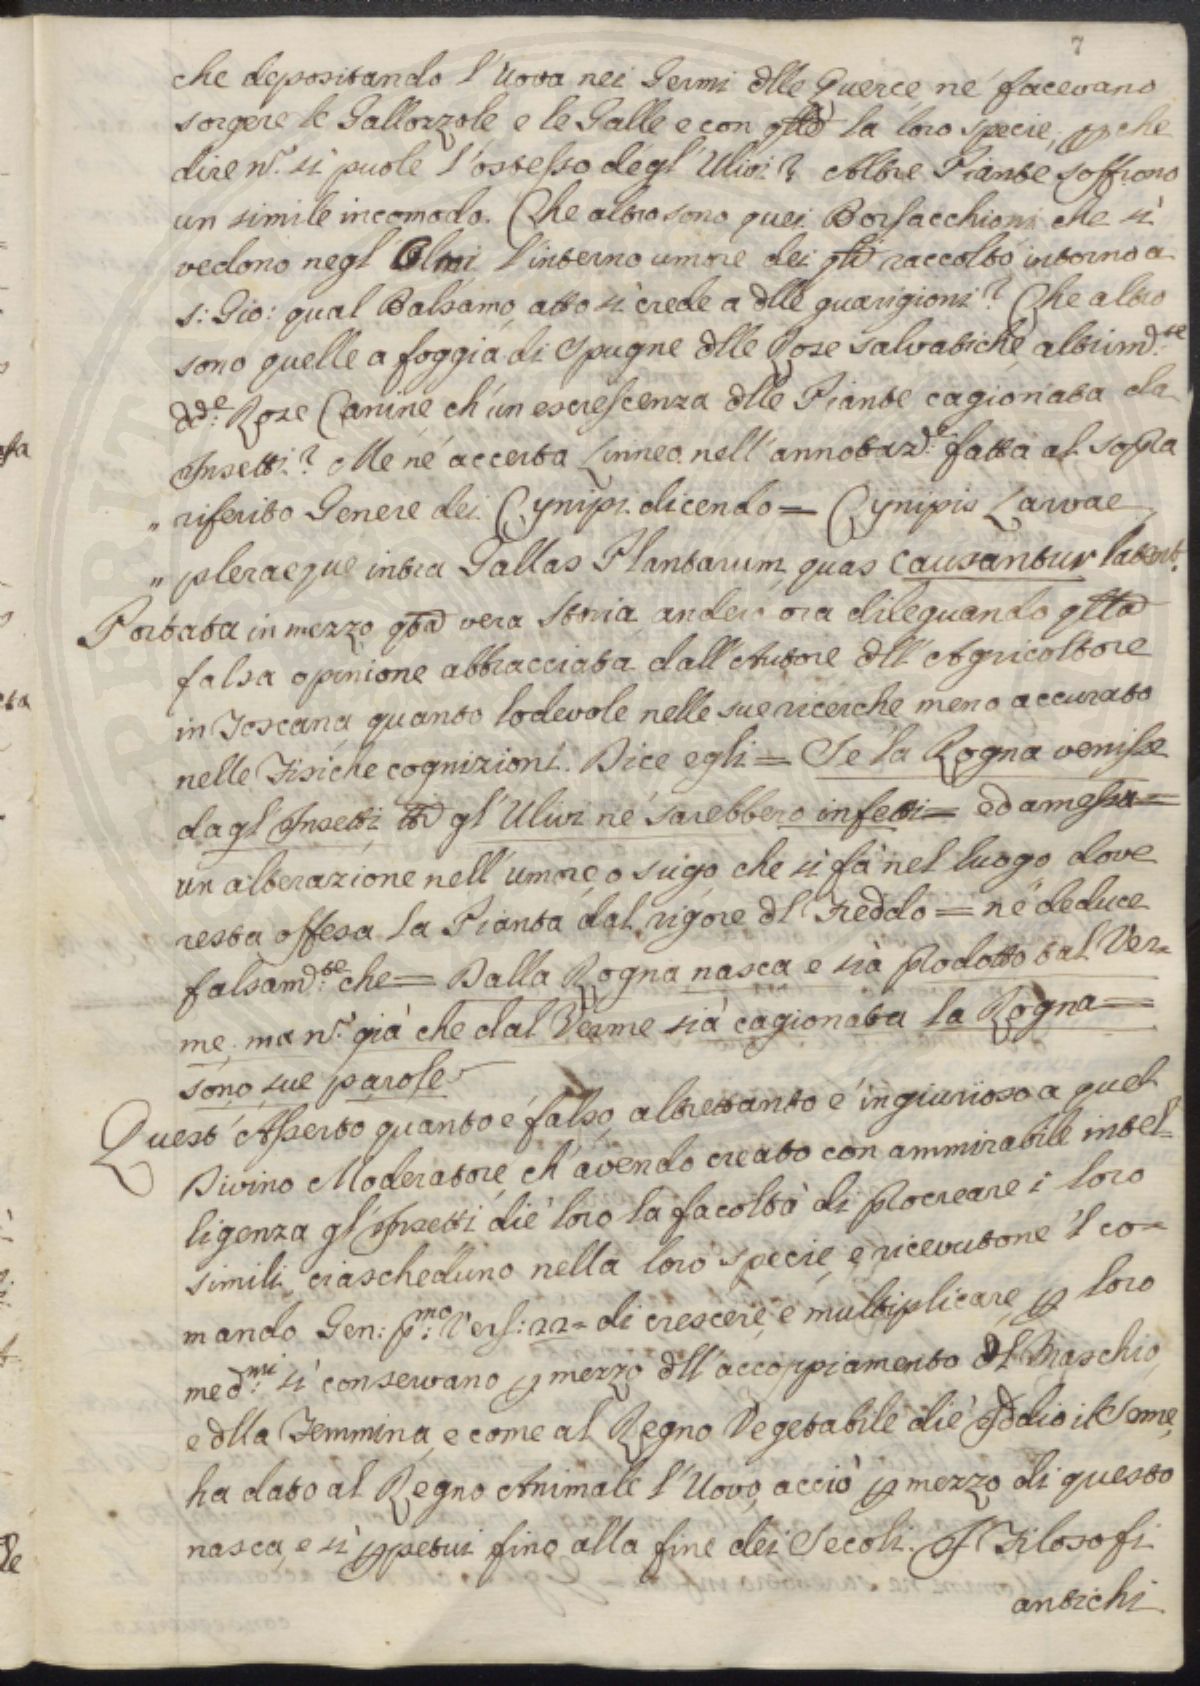 7
che depositando l'Uova nei Germi dlle Querce né facevano
sorgere le Gallozzole e le Galle e con qlle la loro specie, pche
dire n. si puole l'ostesso degl'Ulivi? Altre Piante soffrono
un simile incomodo. Che altro sono quei Borsacchioni che si
vedono negl Olmi l'interno umore dei qli raccolto intorno a
S: Gio: qual Balsamo atto si crede a dlle guarigioni? Che altro
sono quelle a foggia di Spugne dlle Rose salvatiche altrimd.te
dd.e Rose Canine ch'un escrescenza dlle Piante cagionata da
Insetti? Me né accerta Linneo nell'annotaz.e fatta al sopra
" riferito Genere dei Cynipi dicendo = Cynipis Larvae
" pleraeque intra Gallas Plantarum, quas causantur latent.
Portata in mezzo qta vera Storia anderò ora dileguando qlla
falsa opinione abbracciata dall'Autore dll'Agricoltore
in Toscana quanto lodevole nelle sue ricerche meno accurato
nelle Fisiche cognizioni. Dice egli = Se la Rogna venisse
dagl'Insetti tti gl'Ulivi né sarebbero infetti = ed amessa =
un alterazione nell'umore o sugo che si fà nel luogo dove
resta offesa la Pianta dal rigore dl Freddo = né deduce
falsamd.te che = Dalla Rogna nasca e sià prodotto tal Ver=
me, ma n. già che dal Verme sià cagionata la Rogna =
sono sue parole
Quest'Asserto quanto é falso altrettanto é ingiurioso a quel
Divino Moderatore, ch'avendo creato con ammirabile intel=
ligenza gl'Insetti diè loro la facoltà di procreare i loro
simili ciascheduno nella loro specie, e ricevutone 'l co=
mando Gen: p.mo Vers: 22 = di crescere, e multiplicare, p loro
med.mi si conservano p mezzo dll'accoppiamento dl Maschio,
e dlla Femmina, e come al Regno Vegetabile diè Iddio il Seme,
ha dato al Regno Animale l'Uovo, acciò p mezzo di questo
nasca, e si ppetui fino alla fine dei Secoli. I Filosofi
antichi